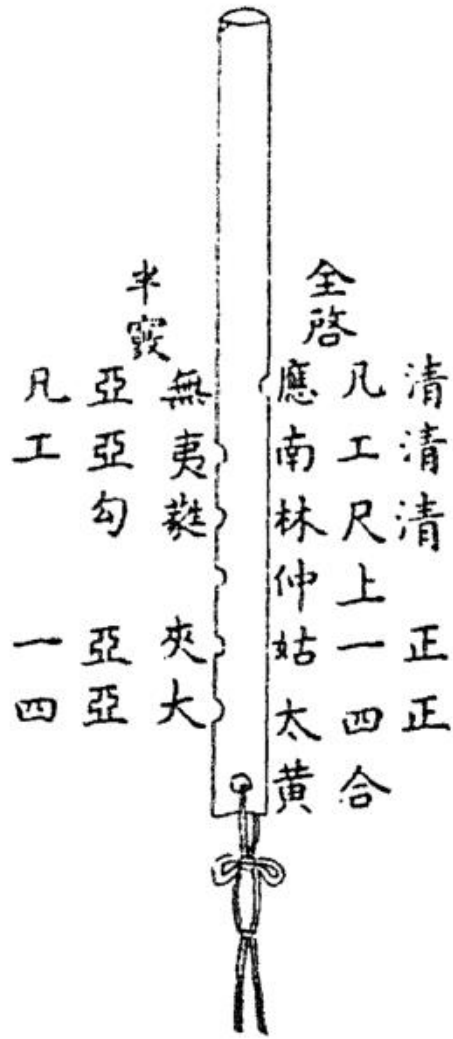 清清清正正
凡工尺上一四合
全啓
應南林仲姑太黄
無夷蕤夾大
半竅
亞亞勾亞亞
凡工一四